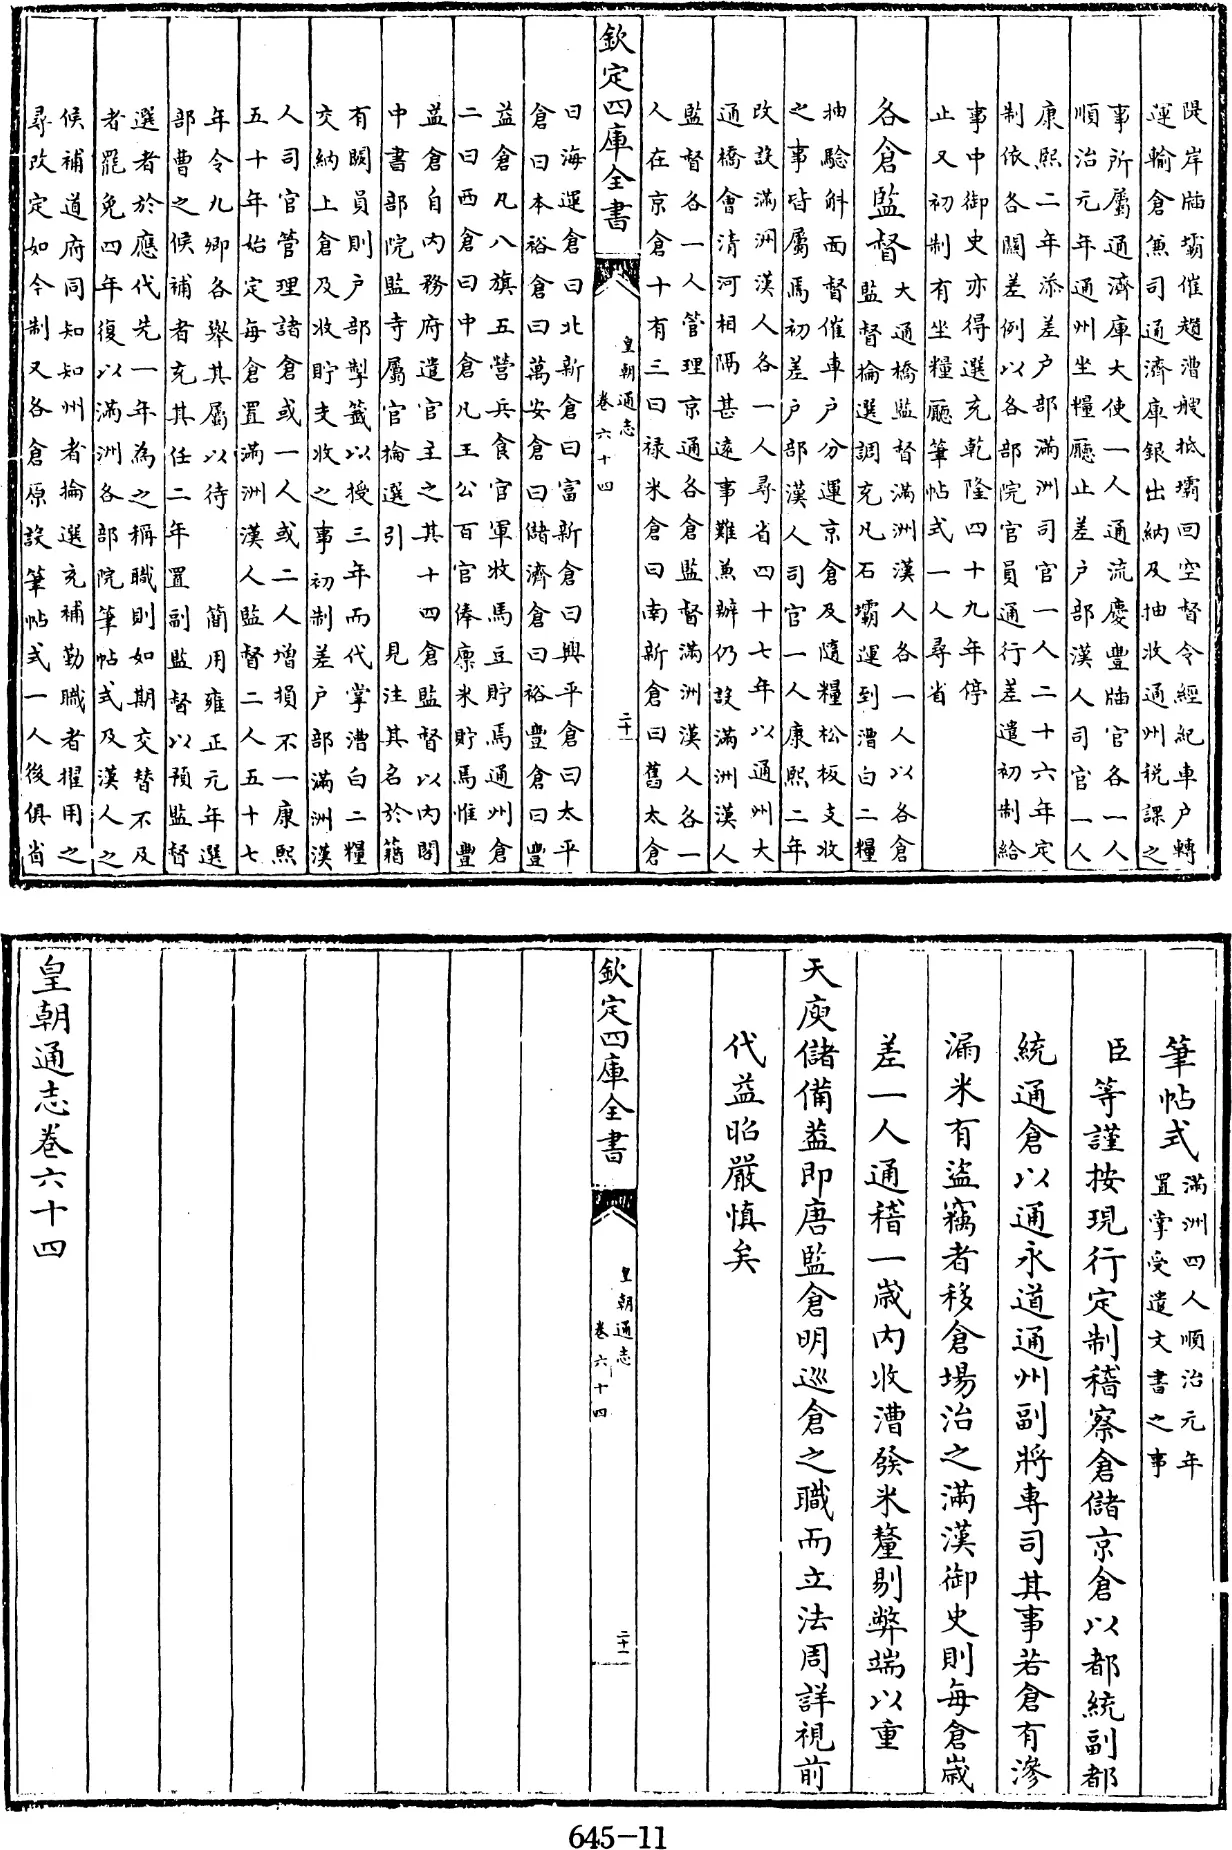 隄岸牐壩催趲漕艘抵壩回空督令經紀車户轉
運輸倉兼司通濟庫銀出納及抽收通州税課之
事所屬通濟庫大使一人通流慶豐牐官各一人
順治元年通州坐糧廳止差户部漢人司官一人
康熙二年添差户部滿洲司官一人二十六年定
制依各闗差例以各部院官員通行差遣初制給
事中御史亦得選充乾隆四十九年停
止又初制有坐糧廳筆帖式一人尋省
各倉監督
大通橋監督滿洲漢人各一人以各倉
監督掄選調充凡石壩運到漕白二糧
抽驗斛面督催車户分運京倉及隨糧松板支收
之事皆屬焉初差户部漢人司官一人康熙二年
改設滿洲漢人各一人尋省四十七年以通州大
通橋會清河相隔甚遠事難兼辦仍設滿洲漢人
監督各一人管理京通各倉監督滿洲漢人各一
人在京倉十有三曰禄米倉曰南新倉曰舊太倉
欽定四庫全書
皇朝通志
卷六十四
二十一
曰海運倉曰北新倉曰富新倉曰興平倉曰太平
倉曰本裕倉曰萬安倉曰儲濟倉曰裕豐倉曰豐
益倉凡八旗五營兵食官軍牧馬豆貯焉通州倉
二曰西倉曰中倉凡王公百官俸廪米貯焉惟豐
益倉自内務府遣官主之其十四倉監督以内閣
中書部院監寺屬官掄選引 見注其名於籍
有闕員則户部掣籖以授三年而代掌漕白二糧
交納上倉及收貯支收之事初制差户部滿洲漢
人司官管理諸倉或一人或二人增損不一康熙
五十年始定每倉置滿洲漢人監督二人五十七
年令九卿各舉其屬以待 簡用雍正元年選
部曹之候補者充其任二年置副監督以預監督
選者於應代先一年為之稱職則如期交替不及
者罷免四年復以滿洲各部院筆帖式及漢人之
候補道府同知知州者掄選充補勤職者擢用之
尋改定如今制又各倉原設筆帖式一人後俱省
筆帖式
滿洲四人順治元年
置掌受遣文書之事
臣等謹按現行定制稽察倉儲京倉以都統副都
統通倉以通永道通州副將專司其事若倉有滲
漏米有盜竊者移倉場治之滿漢御史則每倉歲
差一人通稽一歲内收漕發米釐剔弊端以重
天庾儲備葢即唐監倉明巡倉之職而立法周詳視前
代益昭嚴慎矣
欽定四庫全書
皇朝通志
卷六十四
二十一
皇朝通志卷六十四
645-11